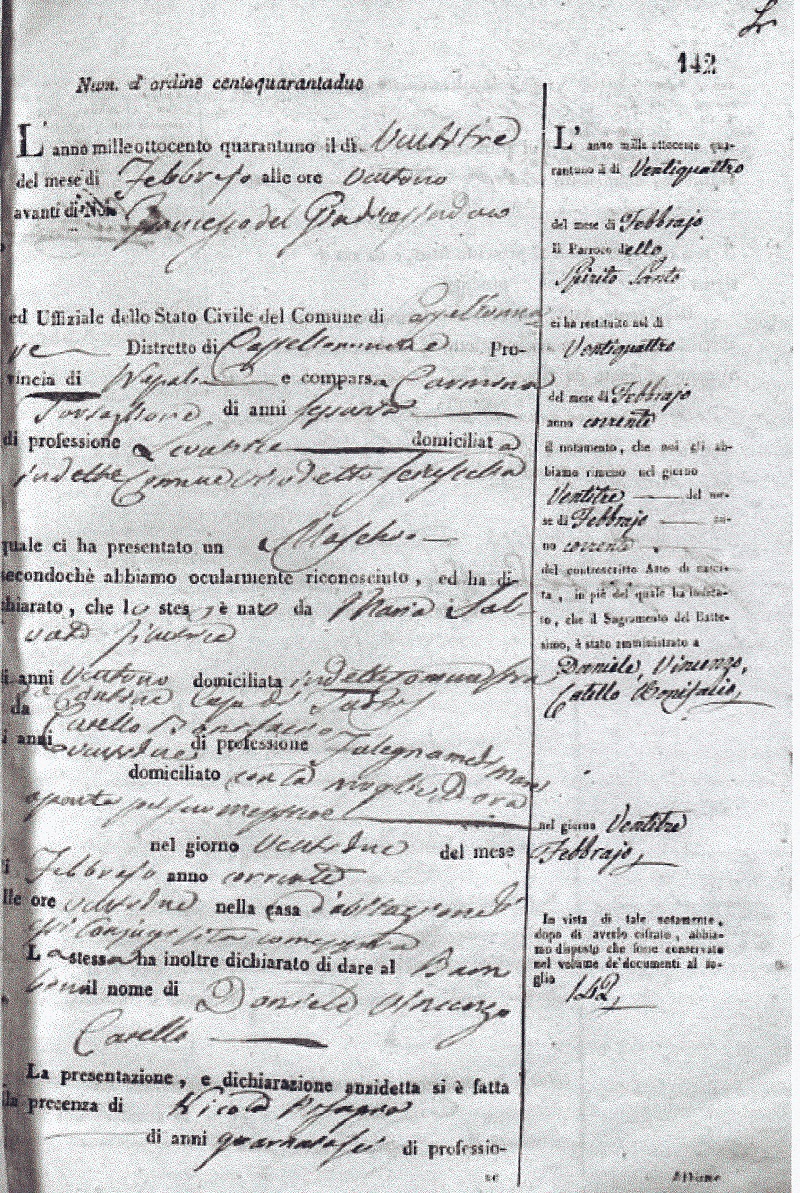 142
Num. d'ordine centoquarantadue
L'anno mille ottocento quarantuno il dì Ventitre
del mese di Febbrajo alle ore ventuno
avanti di Noi Francesco del
ed Uffiziale dello Stato Civile del Comune di Castellamma
re Distretto di Castellammare Pro-
vincia di Napoli e comparsa Carmina
di anni sessanta
di professione Levatrice domiciliata
in detto Comune
quale ci ha presentato un Maschio
secondochè abbiamo ocularmente riconosciuto, ed ha di-
chiarato, che lo stesso è nato da Maria Sal-
vato
di anni ventuno domiciliata in detto Comune
da
Catello Bonifacio
i anni ventidue di professione Falegname
domiciliato con la moglie Dora
nel giorno Ventidue del mese
di Febbrajo anno corrente
lle ore ventidue nella casa d'abitazione
La stessa ha inoltre dichiarato di dare al Bam
bino il nome di Daniele, Vincenzo
Catello
La presentazione, e dichiarazione anzidetta si è fatta
lla presenza di Nicola
di anni quarantasei di professio-
ne
L'anno mille ottocento qua-
rantuno il dì Ventiquattro
del mese di Febbrajo
Il Parroco dello
Spirito Santo
ci ha restituito nel dì
Ventiquattro
del mese di Febbrajo
anno corrente
il notamento, che noi gli ab-
biamo rimesso nel giorno
Ventitre del me-
se di Febbrajo an-
no corrente
del controscritto Atto di nasci-
ta, in piè del quale ha indica-
to, che il Sagramento del Batte-
simo, è stato amministrato a
Daniele, Vincenzo,
Catello Bonifacio,
nel giorno Ventitre
Febbrajo,
In vista di tale notamento,
dopo di averlo cifrato, abbia-
mo disposto che fosse conservato
nel volume de'documenti al fo-
glio 142,